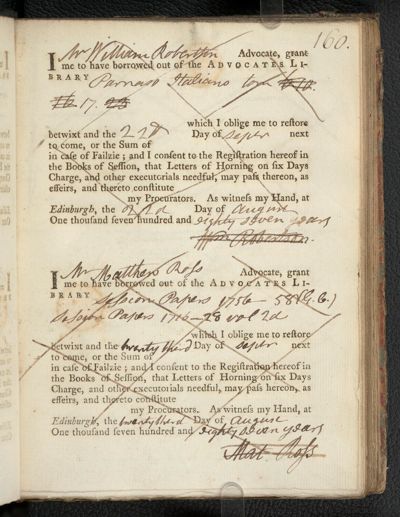 160.
I Mr William Robertson Advocate, grant
me to have borrowed out of the ADVOCATES LI-
BRARY Parnaso Italiano tom.
17.
which I oblige me to restore
betwixt and the 22d Day of Septr next
to come, or the Sum of
in case of Failzie; and I consent to the Registration hereof in
the Books of Session, that Letters of Horning on six Days
Charge, and other executorials needful, may pass thereon, as
effeirs, and thereto constitute
my Procurators. As witness my Hand, at
Edinburgh, the 22d Day of August
One thousand seven hundred and eighty seven years
Wm Robertson.
I Mr Matthew Ross Advocate, grant
me to have borrowed out of the ADVOCATES LI-
BRARY Session Papers 1756 — 58
Session Papers 28 vol 2d
which I oblige me to restore
betwixt and the twenty third Day of Septr next
to come, or the Sum of
in case of Failzie; and I consent to the Registration hereof in
the Books of Session, that Letters of Horning on six Days
Charge, and other executorials needful, may pass hereon, as
effeirs, and thereto constitute
my Procurators. As witness my Hand, at
Edinburgh, the twenty third Day of August
One thousand seven hundred and eighty seven years
Mat. Ross